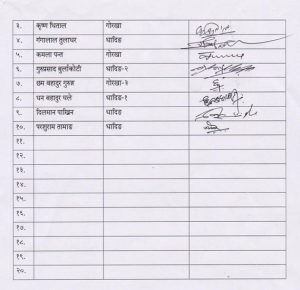 ३. कृष्ण धिताल गोरखा
४. गंगालाल तुलाधर धादिङ
५. कमला पन्त गोरखा
६. गुरुप्रसाद बुर्लाकोटी धादिङ-२
७. छम बहादुर गुरुङ गोरखा-३
८. धन बहादुर घले धादिङ-१
९. दिलमान पाख्रिन धादिङ
१०. परशुराम तामाङ धादिङ
११.
१२.
१३.
१४.
१५.
१६.
१७.
१८.
१९.
२०.